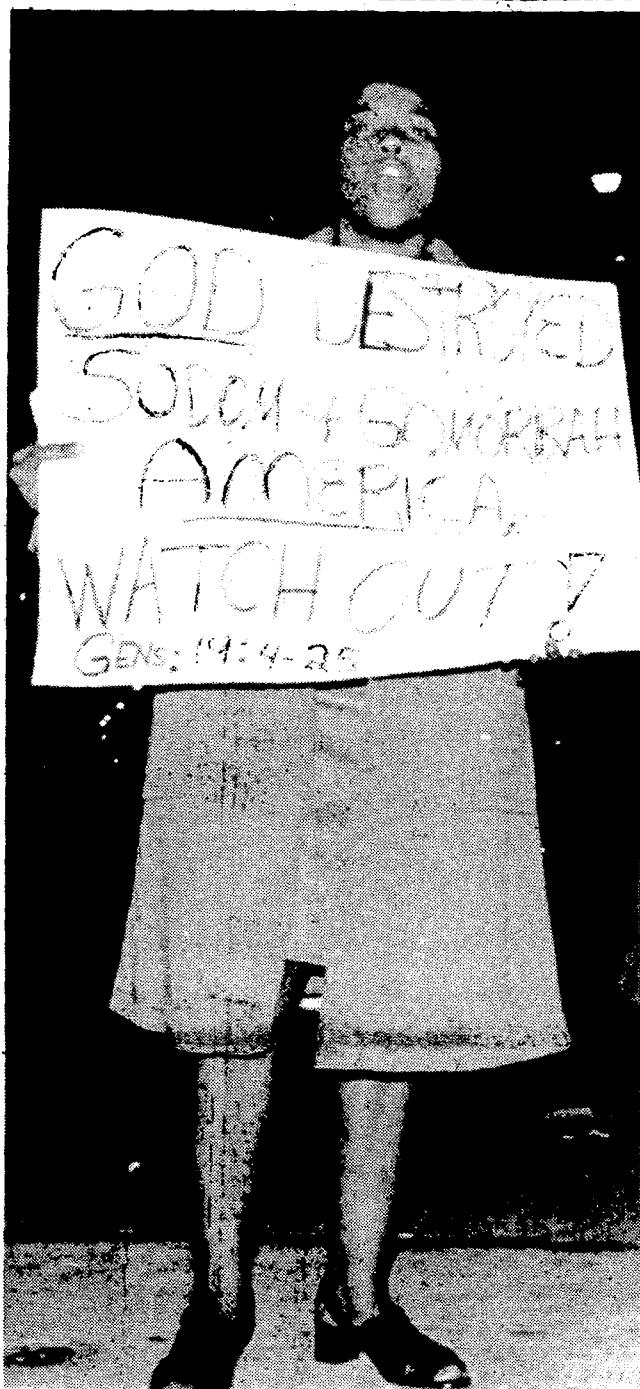 GOD DESTROYED
SODOM & GOMORRAH
AMERICA,
WATCH OUT!
GENS: 19:4-25